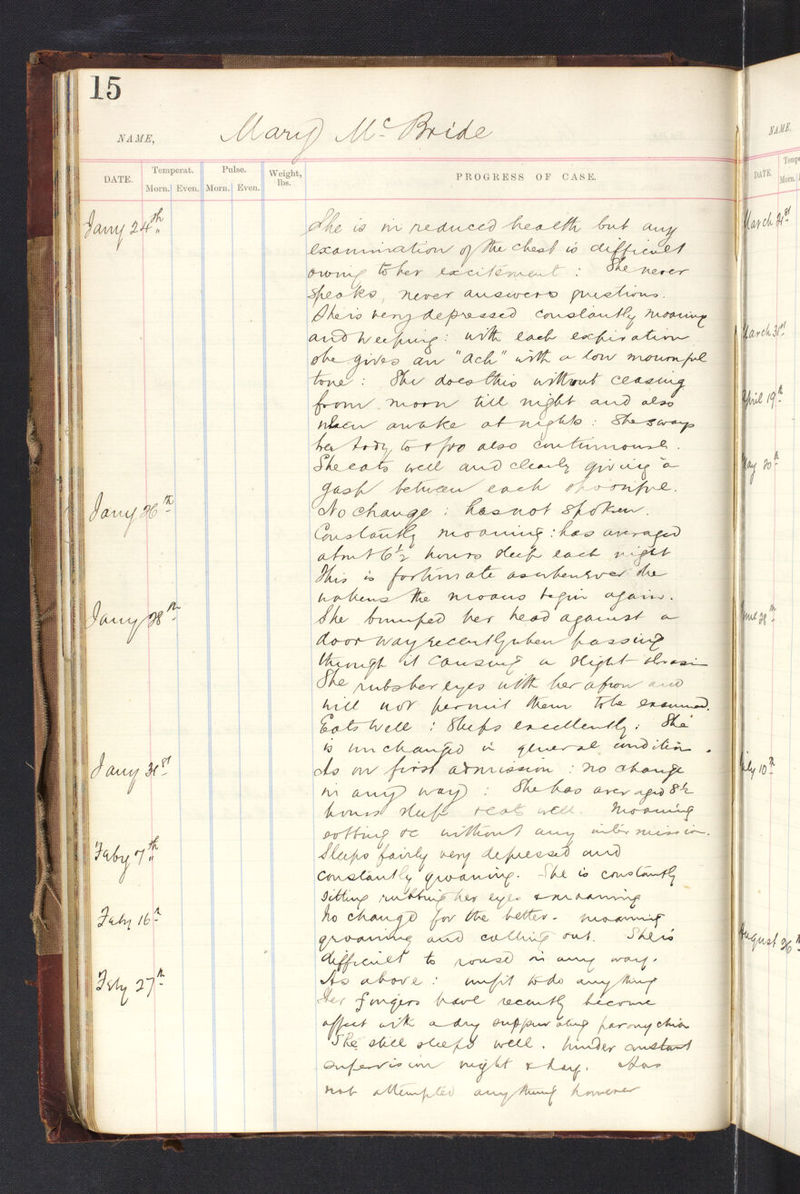 15
NAME, Mary McBride
DATE. Temperat. Pulse. Weight, lbs. PROGRESS OF CASE.
Morn. Even. Morn. Even.
Jany 24th She is in reduced health but any
examination of the chest is difficult
owing to her excitement : She never
speaks, never answers questions.
She is very depressed constantly moaning
and weeping : with each expiration
she gives an "ach" with a low mournful
tone : She does this without ceasing
from morn till night and also
when awake at nights : She sways
her body to & fro also
She eats well and cleanly giving a
gasp between each spoonful.
Jany 26th No change : has not spoken.
Constantly moaning : has averaged
about 6½ hours sleep each night
This is fortunate as whenever she
wakens the moans begin again.
Jany 28th She bumped her head against a
doorway recently when passing
through it causing a slight
She rubs her eyes with her apron and
will not permit them to be examined.
Eats well : Sleeps excellently. She
is unchanged in general condition.
Jany 31st As on first admission : no change
in any way : She has averaged 8½
hours sleep & eats well. Moaning
sobbing &c without any intermission.
Feby 7th Sleeps fairly very depressed and
constantly groaning. She is constantly
sitting rubbing her eyes & moaning
Feby 16th No change for the better. moaning
groaning and calling out. She is
difficult to rouse in any way.
Feby 27th As above : unfit to do anything
Her fingers have recently become
affect with a dry suppurating paronychia
She still sleeps well. Under constant
supervision night & day. Has
not attempted anything however
NAME.
DATE. Morn.
March 21st
March 31st
April 19th
May 30th
June 28th
July 10th
August 26th